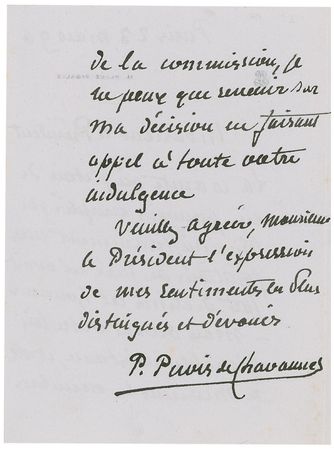 de la commission, je
ne peux que revenir sur
ma décision en faisant
appel à toute votre
indulgence
Veuillez agréer, monsieur
le Président l'expression
de mes sentiments les plus
distingués et dévoués
P. Puvis de Chavannes